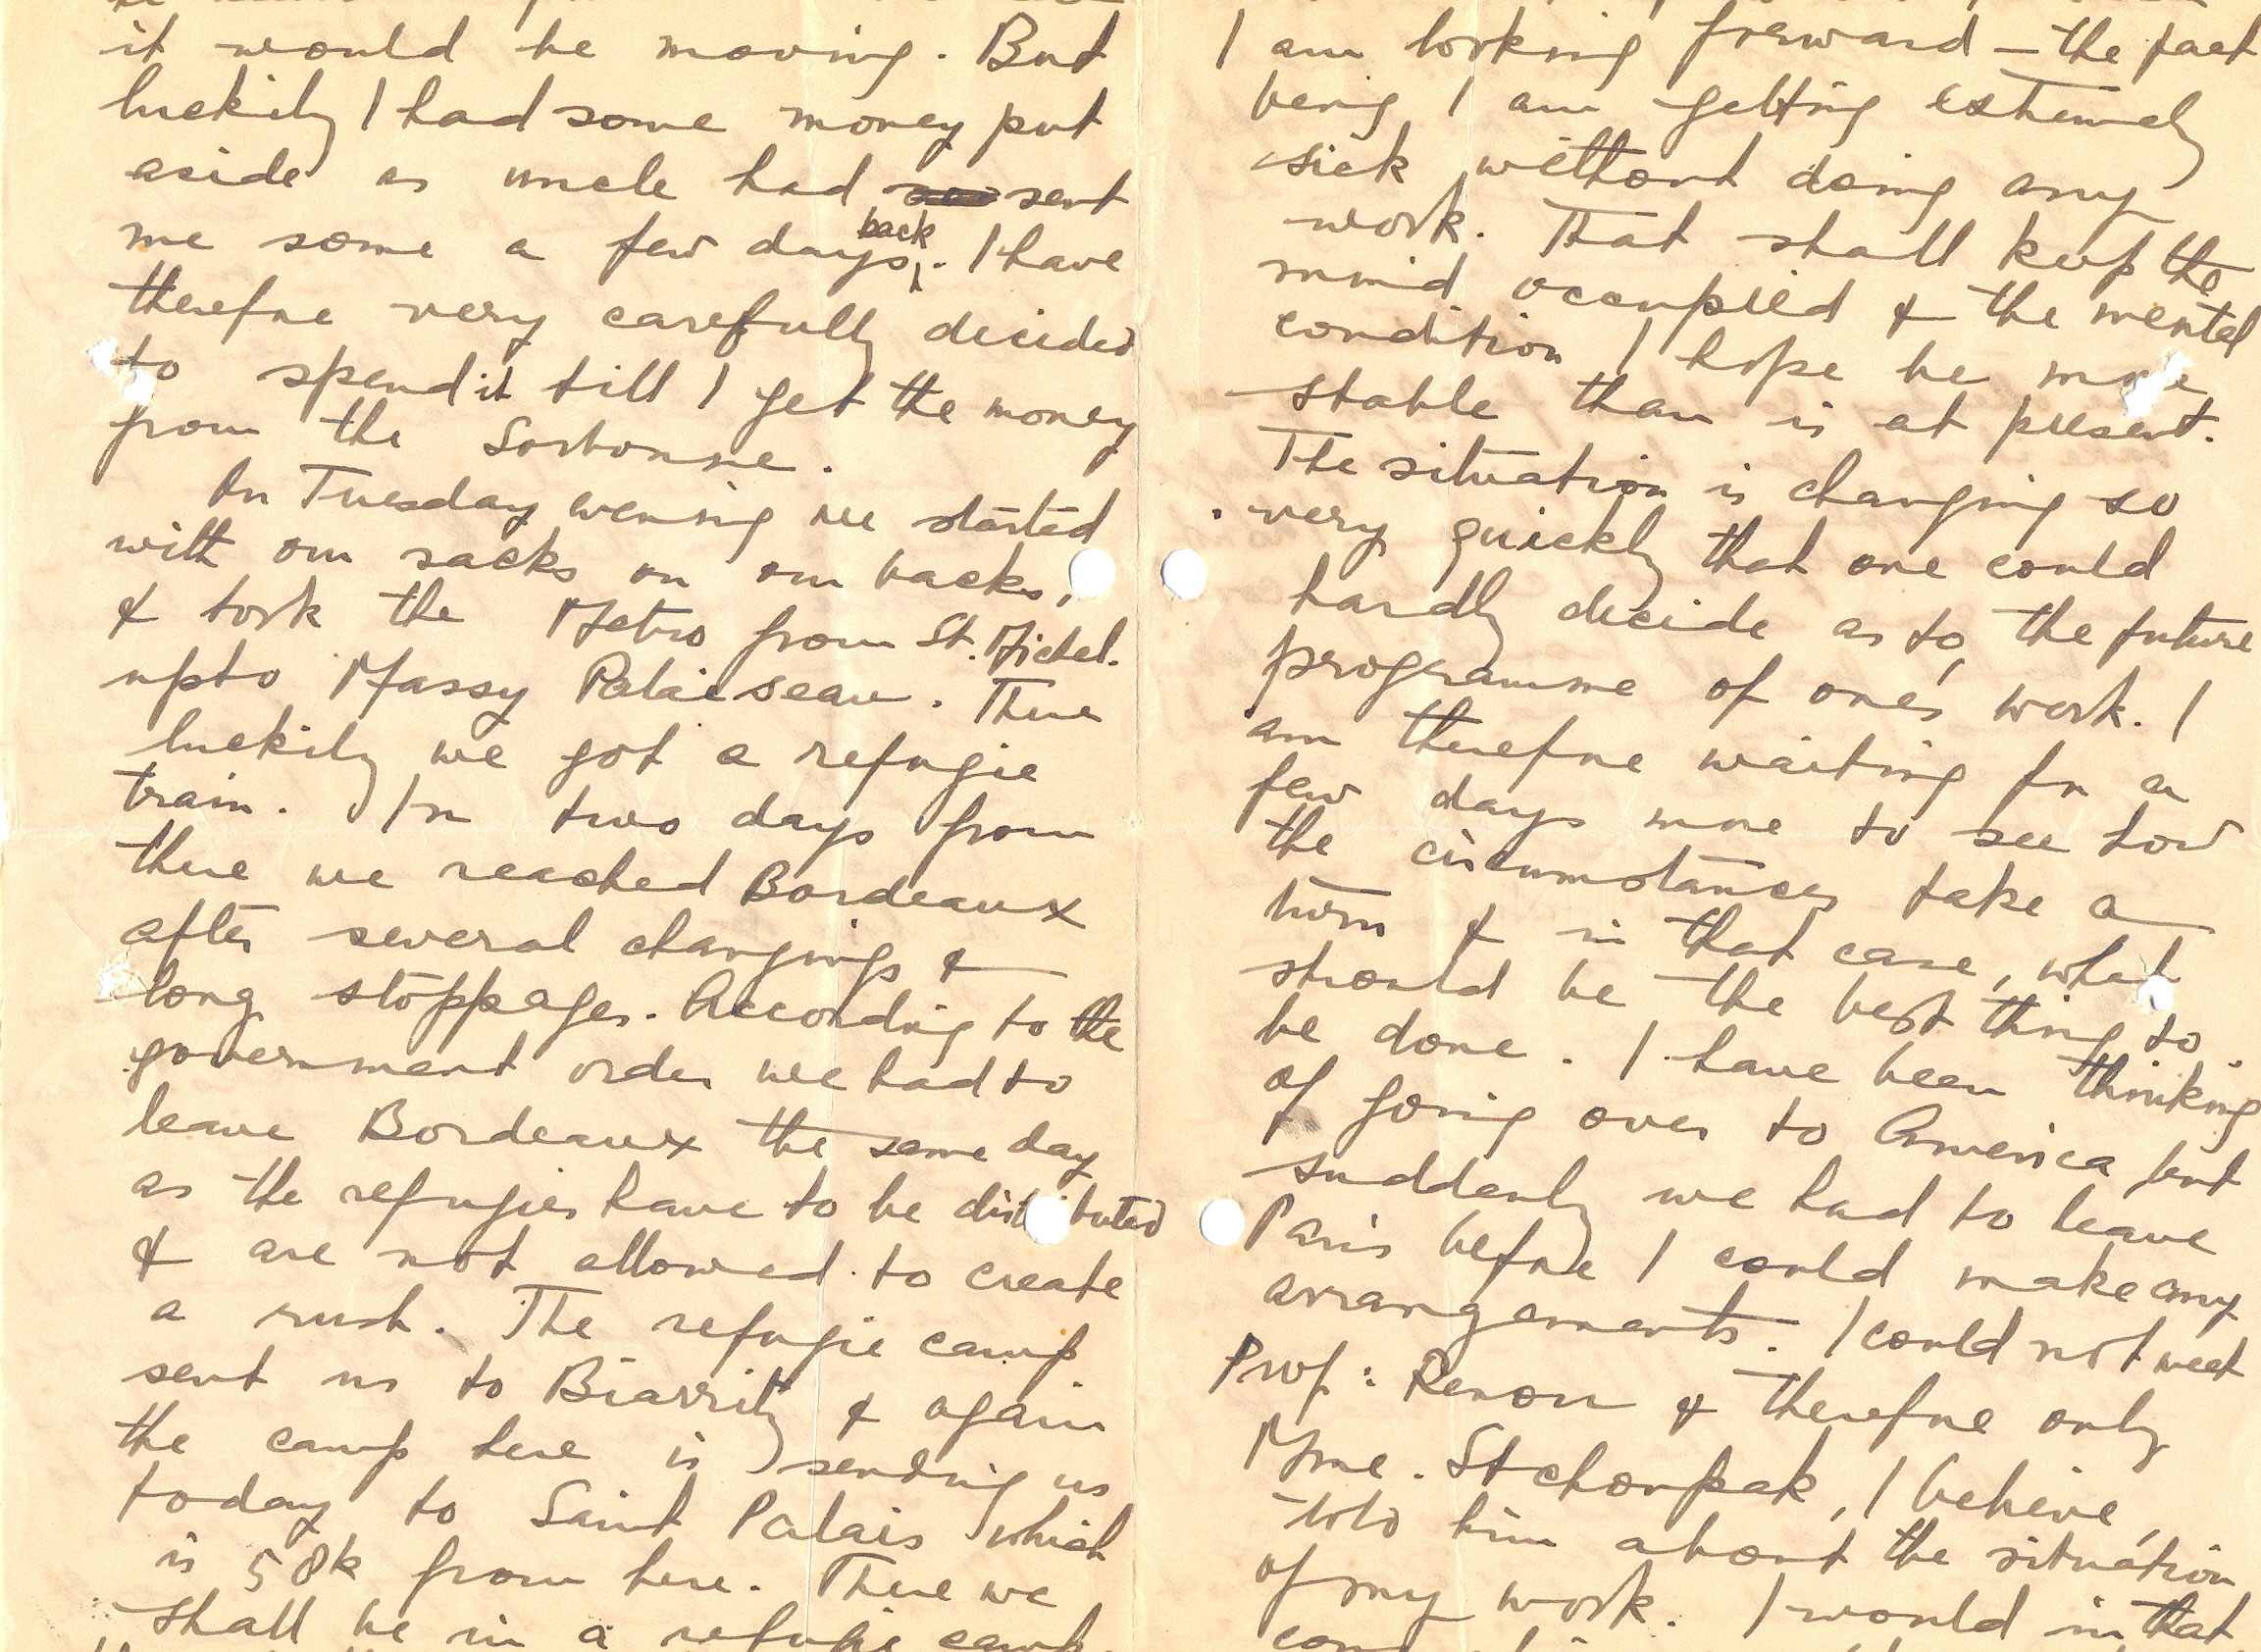 it would be moving. But
luckily I had some money put
aside as uncle had sent
me some a few days back. I have
therefore very carefully decided
to spend it till I get the money
from the Sorbonne.
On Tuesday evening we started
with our sacks on our backs,
& took the Metro from St. Michel.
upto Massy Palaiseau. There
luckily we got a refugie
train. In two days from
there we reached Bordeaux
after several changings &
long stoppages. According to the
government order we had to
leave Bordeaux the same day
as the refugies have to be distributed
& are not allowed to create
a rush. The refugie camp
sent us to Biarritz & again
the camp here is sending us
today to Saint Palais which
is 58k from here. There we
shall be in a refugie camp
I am looking forward – the fact
being I am getting extremely
sick without doing any
work. That shall keep the
mind occupied & the mental
condition I hope be more
stable than is at present.
The situation is changing so
very quickly that one could
hardly decide as to, the future
programme of one's work. I
am therefore waiting for a
few days more to see how
the circumstances take a
turn & in that case, what
should be the best thing to
be done. I have been thinking
of going over to America but
suddenly we had to leave
Paris before I could make any
arrangements. I could not meet
Prof: Renou & therefore only
Mme. Stchoupak, I believe,
told him about the situation
of my work. I would in that